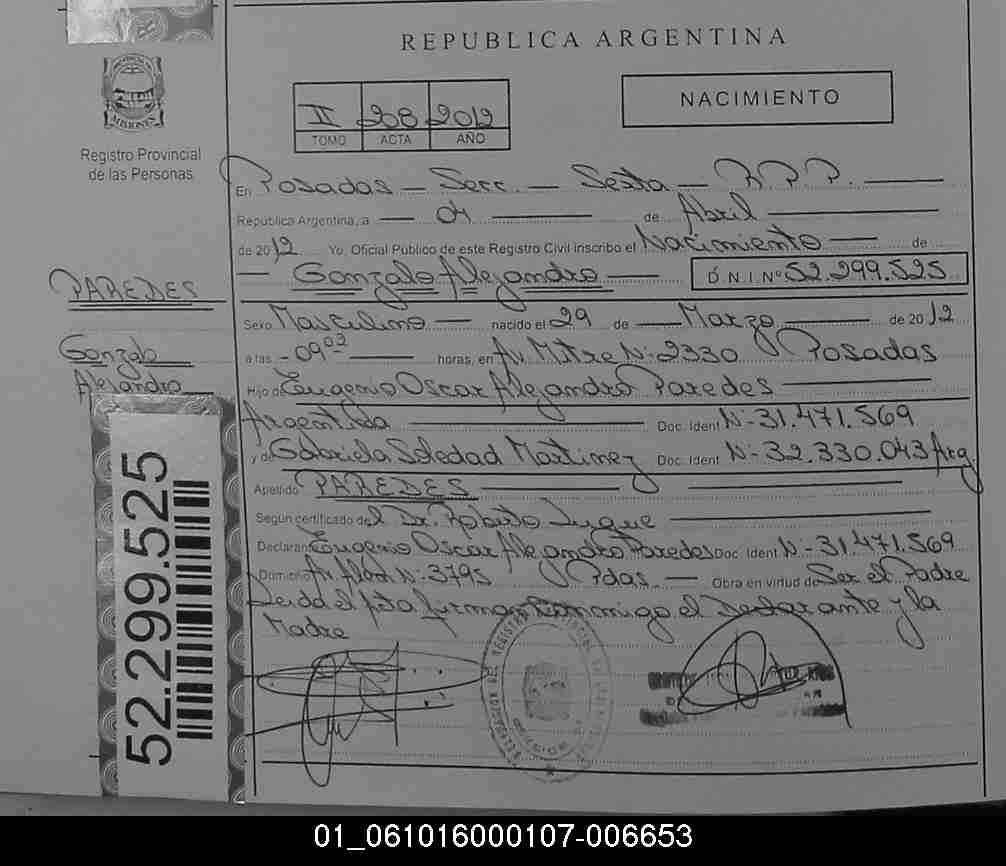 REPUBLICA ARGENTINA
MISIONES
Registro Provincial
de las Personas
II 208 2012
TOMO ACTA AÑO
NACIMIENTO
En Posadas - Secc. - Sexta - R.P.P.
República Argentina, a - 04 - de Abril
de 2012 Yo, Oficial Público de este Registro Civil inscribo el Nacimiento - de
- Gonzalo Alejandro - D.N.I. Nº 52.299.525
PAREDES
Gonzalo
Alejandro
Sexo Masculino - nacido el 29 de - Marzo - de 2012
a las - 09 02 - horas, en Av. Mitre Nº 2330 Posadas
Hijo de Eugenio Oscar Alejandro Paredes
Argentina - Doc. Ident Nº 31.471.569
y de Gabriela Soledad Martinez Doc. Ident Nº 32.330.043 Arg
Apellido PAREDES
Según certificado del Dr. Roberto Luque
Declarante Eugenio Oscar Alejandro Paredes Doc. Ident Nº 31.471.569
Domicilio Av. Nº 3795 Pdas - Obra en virtud de Ser el Padre
Leida el Acta firman Conmigo el Declarante y la
Madre
52.299.525
01_061016000107-006653